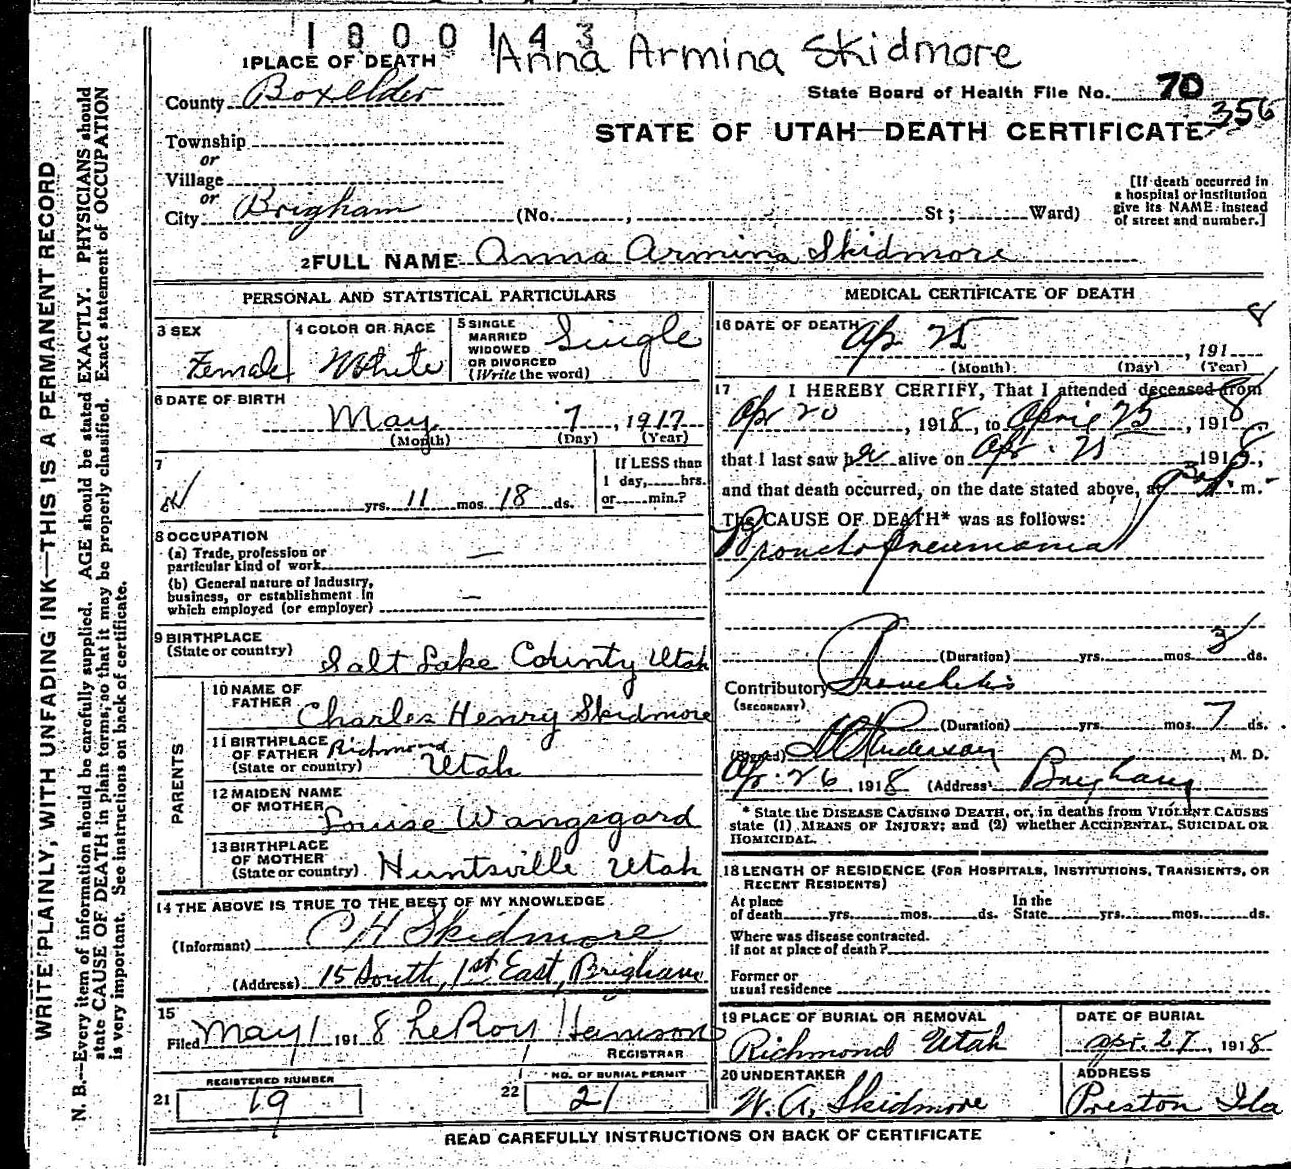 1800143
Anna Armina Skidmore
1 PLACE OF DEATH
County Boxelder
State Board of Health File No. 70
356
STATE OF UTAH—DEATH CERTIFICATE
Township
or
Village
or
City Brigham (No. , St; Ward)
[If death occurred in
a hospital or institution
give its NAME instead
of street and number.]
2 FULL NAME Anna Armina Skidmore
PERSONAL AND STATISTICAL PARTICULARS
3 SEX
Female
4 COLOR OR RACE
White
5 SINGLE
MARRIED
WIDOWED
OR DIVORCED
(Write the word)
Single
6 DATE OF BIRTH
May 7, 1917
(Month) (Day) (Year)
7
yrs. 11 mos. 18 ds.
If LESS than
1 day, hrs.
or min.?
8 OCCUPATION
(a) Trade, profession or
particular kind of work —
(b) General nature of Industry,
business, or establishment in
which employed (or employer) —
9 BIRTHPLACE
(State or country) Salt Lake County Utah
PARENTS
10 NAME OF
FATHER Charles Henry Skidmore
11 BIRTHPLACE
OF FATHER Richmond
(State or country) Utah
12 MAIDEN NAME
OF MOTHER Louise Wangsgard
13 BIRTHPLACE
OF MOTHER
(State or country) Huntsville Utah
14 THE ABOVE IS TRUE TO THE BEST OF MY KNOWLEDGE
(Informant) C H Skidmore
(Address) 15 South, 1st East, Brigham
15
Filed May 1 1918 LeRoy Harrison
REGISTRAR
21 REGISTERED NUMBER
19
22 NO. OF BURIAL PERMIT
21
MEDICAL CERTIFICATE OF DEATH
16 DATE OF DEATH
Ap 25, 1918
(Month) (Day) (Year)
17 I HEREBY CERTIFY, That I attended deceased from
Ap 20, 1918, to April 25, 1918
that I last saw h alive on Ap. 25 1918,
and that death occurred, on the date stated above, at m.
The CAUSE OF DEATH* was as follows:
Broncho pneumonia
(Duration) yrs. mos. 3 ds.
Contributory Bronchitis
(SECONDARY)
(Duration) yrs. mos. 7 ds.
(Signed) Anderson, M. D.
Ap. 26, 1918 (Address) Brigham
* State the DISEASE CAUSING DEATH, or, in deaths from VIOLENT CAUSES
state (1) MEANS OF INJURY; and (2) whether ACCIDENTAL, SUICIDAL OR
HOMICIDAL.
18 LENGTH OF RESIDENCE (FOR HOSPITALS, INSTITUTIONS, TRANSIENTS, OR
RECENT RESIDENTS)
At place In the
of death yrs. mos. ds. State yrs. mos. ds.
Where was disease contracted.
if not at place of death?
Former or
usual residence
19 PLACE OF BURIAL OR REMOVAL
Richmond Utah
DATE OF BURIAL
Apr. 27, 1918
20 UNDERTAKER
W. A. Skidmore
ADDRESS
Preston Ida
READ CAREFULLY INSTRUCTIONS ON BACK OF CERTIFICATE
WRITE PLAINLY, WITH UNFADING INK—THIS IS A PERMANENT RECORD
N. B.—Every item of information should be carefully supplied. AGE should be stated EXACTLY. PHYSICIANS should
state CAUSE OF DEATH in plain terms, so that it may be properly classified. Exact statement of OCCUPATION
is very important. See instructions on back of certificate.